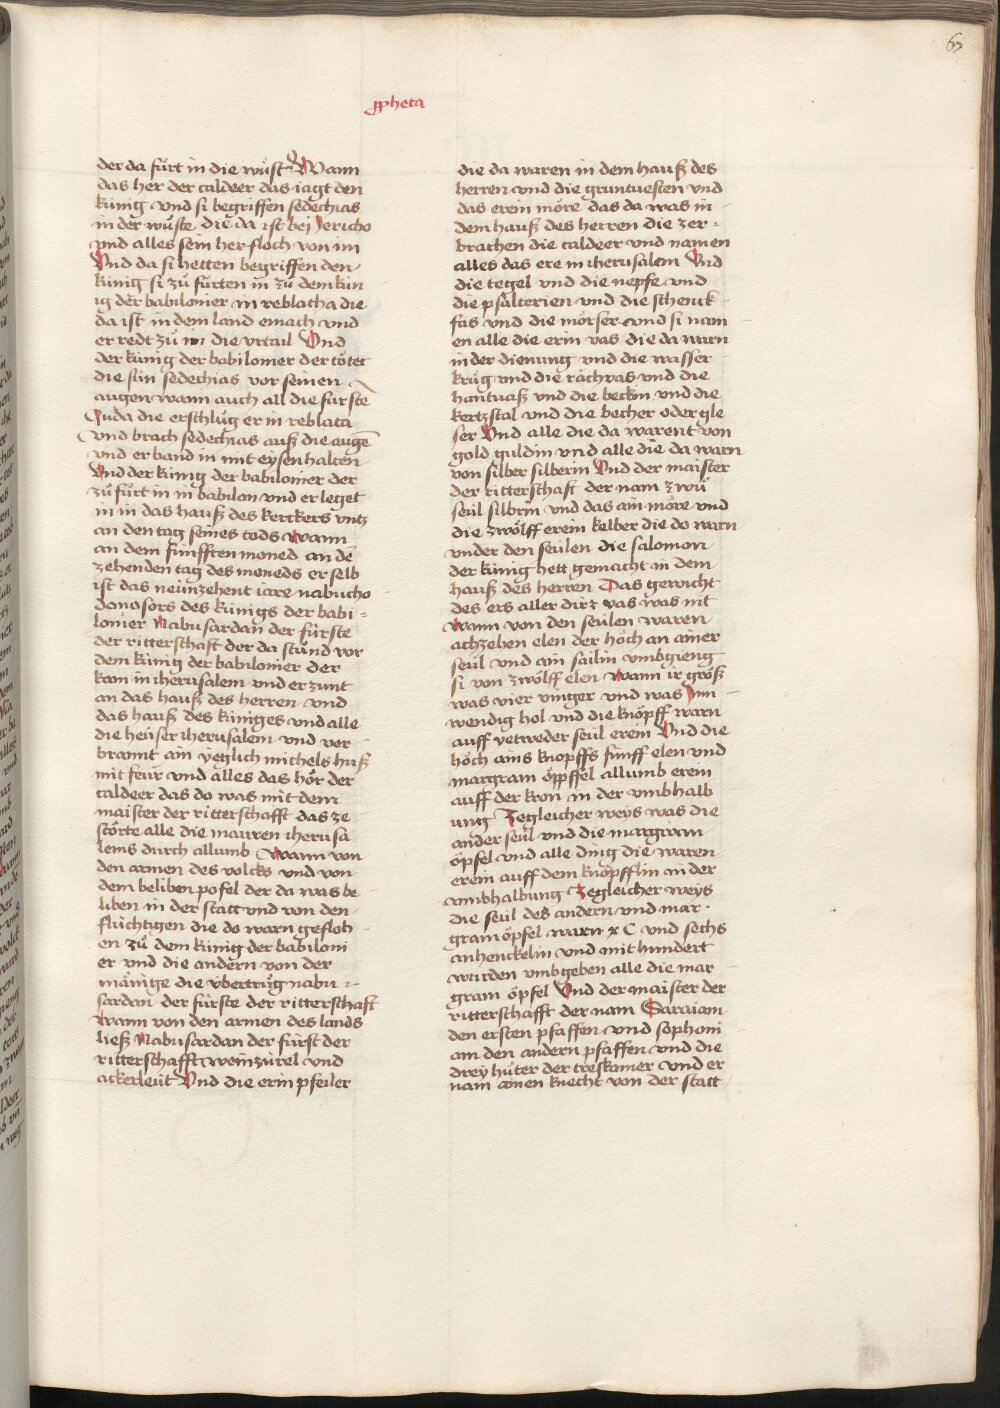 63
ꝓpheta
der da fuͤrt in die wuͤst Wann
das her der caldeer das iagt den
kúnig vnd si begriffen sedechias
in der wuͤste die da ist beÿ Jericho
vnd alles sein her floch von im
Vnd da si hetten begriffen den
kúnig si zuͦ fuͤrten in zuͦ dem kún
ig der babilonier in reblatha die
da ist in dem land emach vnd
er redt zuͦ im die vrtail Vnd
der kúnig der babilonier der toͤtet
die sún sedechias vor seinen
augen wann auch all die fúrstē
Juda die erschluͦg er in reblata
vnd brach sedechias auß die augē
vnd er band in mit eysenhalten
Vnd der kúnig der babilonier der
zuͦ fuͤrt in in babilon vnd er leget
in in das hauß des kerckers vntz
an den tag seines tods Wann
an dem fúnfften moned an dē
zehenden tag des moneds er selb
ist das neúnzehent iare nabucho
donosors des kúnigs der babi-
lonier Nabusardan der fúrste
der ritterschaft der da stuͦnd vor
dem kúnig der babilonier der
kam in iherusalem vnd er zunt
an das hauß des herren vnd
das hauß des kúniges vnd alle
die heúser iherusalem vnd ver
brannt ain yeglich michels huß
mit feur vnd alles das hoͤr der
caldeer das do was mit dem
maister der ritterschafft das ze
stoͤrte alle die mauren iherusa
lems durch allumb Wann von
den armen des volcks vnd von
dem beliben pofel der da was be
liben in der statt vnd von den
flúchtigen die do warn gefloh
en zuͦ dem kúnig der babiloni
er vnd die andern von der
mänige die vbertruͦg nabu-
sardan der fúrste der ritterschaft
Wann von den armen des lands
ließ Nabusardan der fúrst der
ritterschafft weinzúrel vnd
ackerleút Vnd die erin pfeiler
die da waren in dem hauß des
herren vnd die gruntuesten vnd
das erein moͤre das da was in
dem hauß des herren die zer-
brachen die caldeer vnd namen
alles das ere in iherusalem Vnd
die tegel vnd die nepfe vnd
die psalterien vnd die schenck
fas vnd die moͤrser vnd si nam
en alle die erin vas die da warn
in der dienung vnd die wasser
kruͤg vnd die rächvas vnd die
hantuaß vnd die beckin vnd die
kertzstal vnd die becher oder gle
ser Vnd alle die da warent von
gold guldin vnd alle die da warn
von silber silberin Vnd der maister
der ritterschaft der nam zwuͦ
seúl silbrin vnd das ain moͤre vnd
die zwoͤlff erein kelber die do warn
vnder den seúlen die salomon
der kúnig hett gemacht in dem
hauß des herren Das gewicht
des ers aller dirr vas was nit
Wann von den seúlen waren
achzehen elen der hoͤch an ainer
seúl vnd ain sailin vmbgieng
si von zwoͤlff elen Wann ir groͤß
was vier vinger vnd was Inn
wendig hol vnd die knoͤpff warn
auff yetweder seúl erein Vnd die
hoͤch ains knopffs fúnff elen vnd
margram oͤppffel allumb erein
auff der kron in der vmbhalb
ung Zegleicher weÿs was die
ander seúl vnd die margram
oͤpfel vnd alle ding die waren
erein auff dem knoͤpfflin in der
vmbhalbung Zegleicher weÿs
die seúl des andern vnd mar
gram oͤpfel warn x C vnd sechs
anhenckelin vnd mit hundert
wurden vmbgeben alle die mar
gram oͤpfel Vnd der maister der
ritterschafft der nam Saraiam
den ersten pfaffen vnd sophoni
am den andern pfaffen vnd die
dreÿ huͤter der treskamer vnd er
nam ainen knecht von der statt